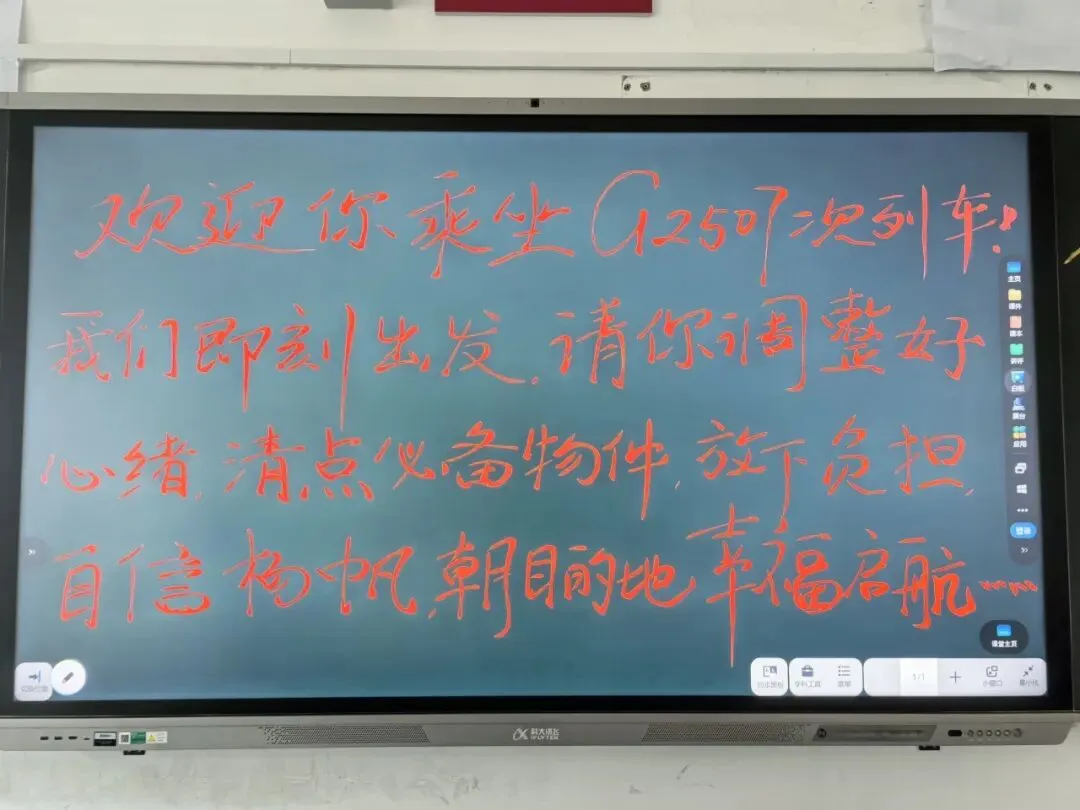 欢迎你乘坐G2507次列车!
我们即刻出发,请你调整好
心绪,清点必备物件,放下负担,
自信扬帆,朝目的地幸福启航……
主页
课件
课本
讲评
白板
展台
应用
登录
课堂主页
切换位置
学科工具
菜单
1/1
小窗口
最小化
科大讯飞
iFLYTEK